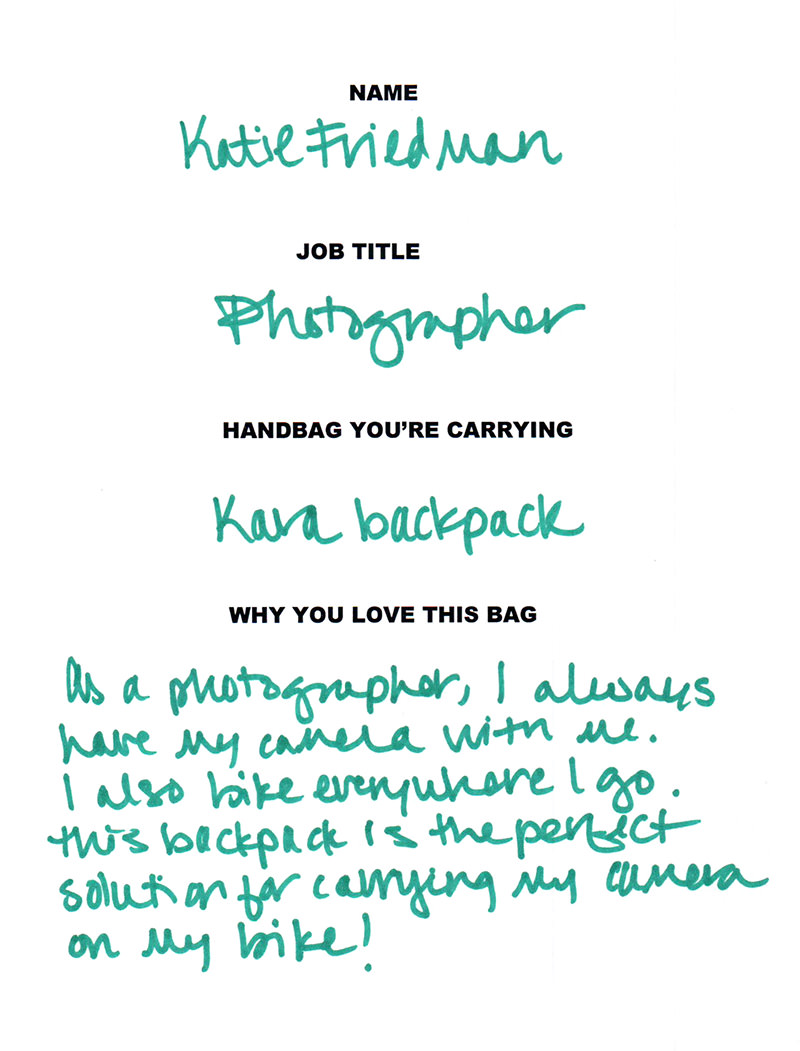 NAME
Katie Friedman
JOB TITLE
Photographer
HANDBAG YOU'RE CARRYING
Kara backpack
WHY YOU LOVE THIS BAG
As a photographer, I always
have my camera with me.
I also bike everywhere I go.
this backpack is the perfect
solution for carrying my camera
on my bike!